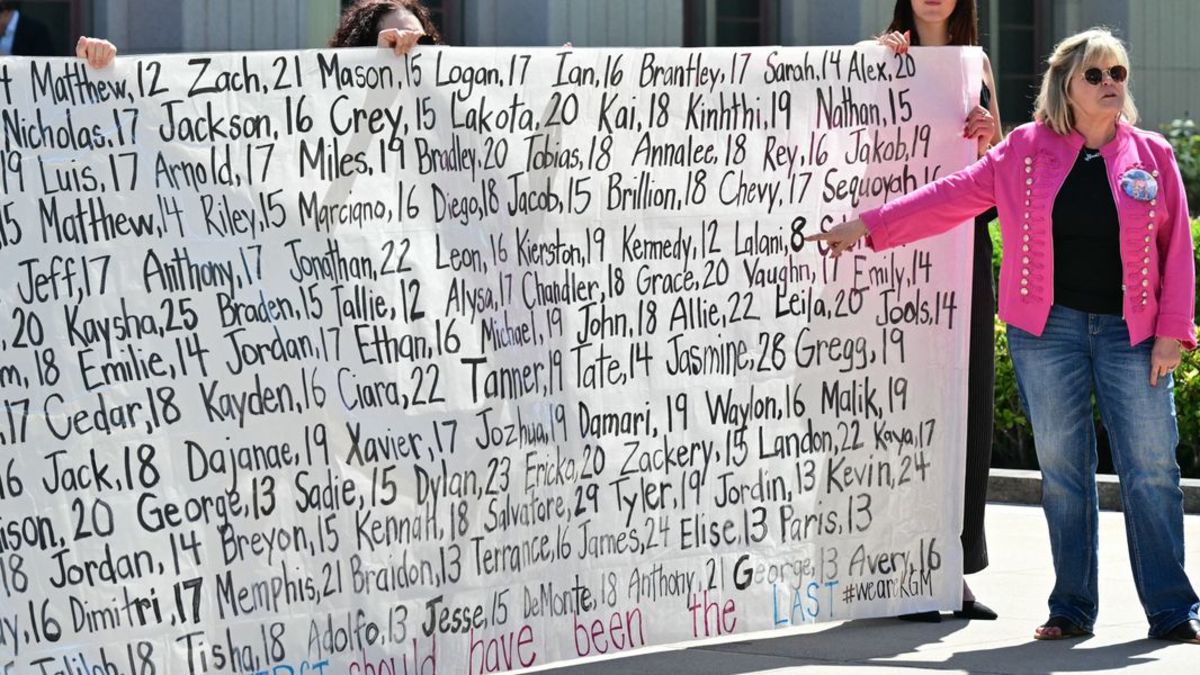 4 Matthew, 12 Zach, 21 Mason, 15 Logan, 17 Ian, 16 Brantley, 17 Sarah, 14 Alex, 20
Nicholas, 17 Jackson, 16 Crey, 15 Lakota, 20 Kai, 18 Kinhthi, 19 Nathan, 15
19 Luis, 17 Arnold, 17 Miles, 19 Bradley, 20 Tobias, 18 Annalee, 18 Rey, 16 Jakob, 19
15 Matthew, 14 Riley, 15 Marciano, 16 Diego, 18 Jacob, 15 Brillion, 18 Chevy, 17 Sequoyah
Jeff, 17 Anthony, 17 Jonathan, 22 Leon, 16 Kierston, 19 Kennedy, 12 Lalani, 8
20 Kaysha, 25 Braden, 15 Tallie, 12 Alysa, 17 Chandler, 18 Grace, 20 Vaughn, 17 Emily, 14
18 Emilie, 14 Jordan, 17 Ethan, 16 Michael, 19 John, 18 Allie, 22 Leila, 20 Jools, 14
17 Cedar, 18 Kayden, 16 Ciara, 22 Tanner, 19 Tate, 14 Jasmine, 28 Gregg, 19
16 Jack, 18 Dajanae, 19 Xavier, 17 Jozhua, 19 Damari, 19 Waylon, 16 Malik, 19
20 George, 13 Sadie, 15 Dylan, 23 Ericka, 20 Zackery, 15 Landon, 22 Kaya, 17
18 Jordan, 14 Breyon, 15 Kennath, 18 Salvatore, 29 Tyler, 19 Jordin, 13 Kevin, 24
16 Dimitri, 17 Memphis, 21 Braidon, 13 Terrance, 16 James, 24 Elise, 13 Paris, 13
18 Tisha, 18 Adolfo, 13 Jesse, 15 DeMonte, 18 Anthony, 21 George, 13 Avery, 16
should have been the LAST #weareKGM